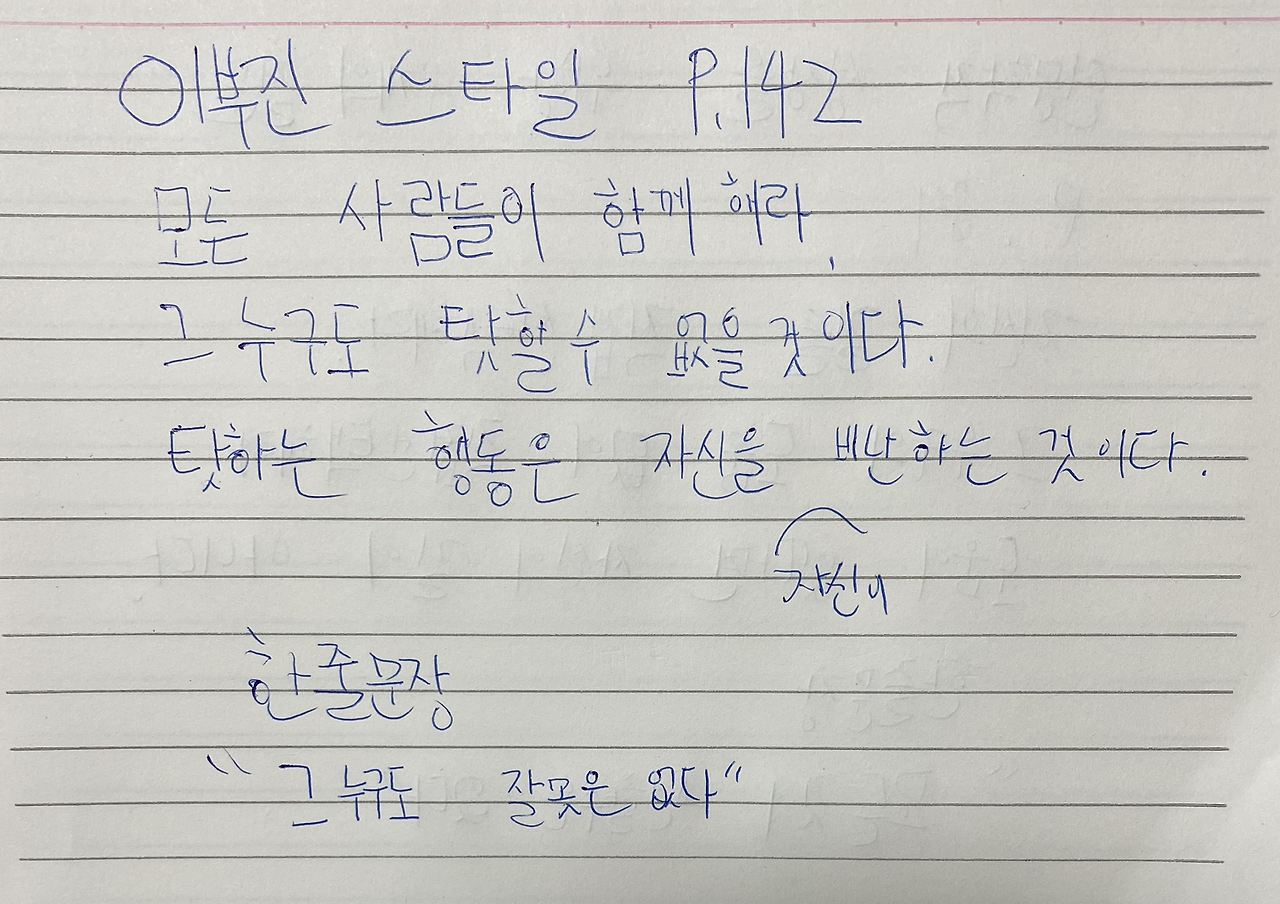 이부진 스타일 P.142
모든 사람들이 함께 해라,
그 누구도 탓할 수 없을 것이다.
탓하는 행동은 자신을 비난하는 것이다.
자신이
한줄문장
"그 누구도 잘못은 없다"